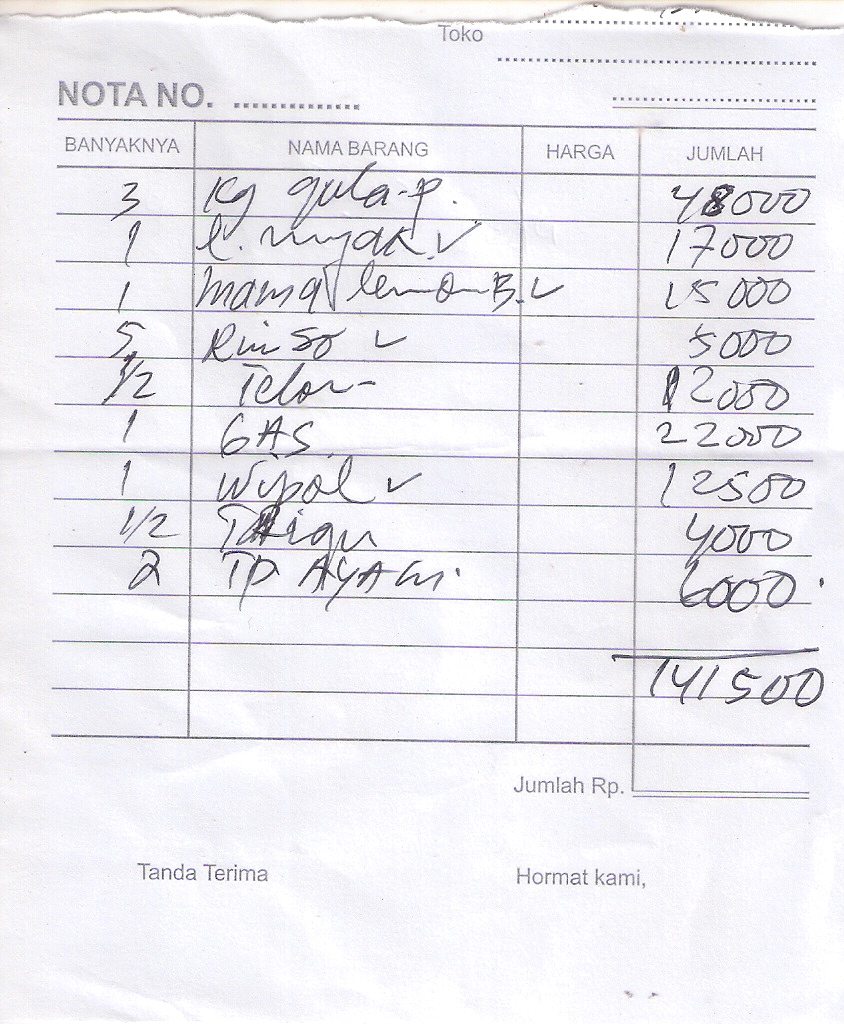 Toko
NOTA NO.
BANYAKNYA NAMA BARANG HARGA JUMLAH
3 Kg gula-p. 48000
1 l. myak 17000
1 mama lemon B. 15000
5 Rinso 5000
1/2 Telor- 12000
1 GAS 22000
1 Wipol 12500
1/2 Trigu 4000
2 TP AYAM 6000
141500
Jumlah Rp.
Tanda Terima Hormat kami,